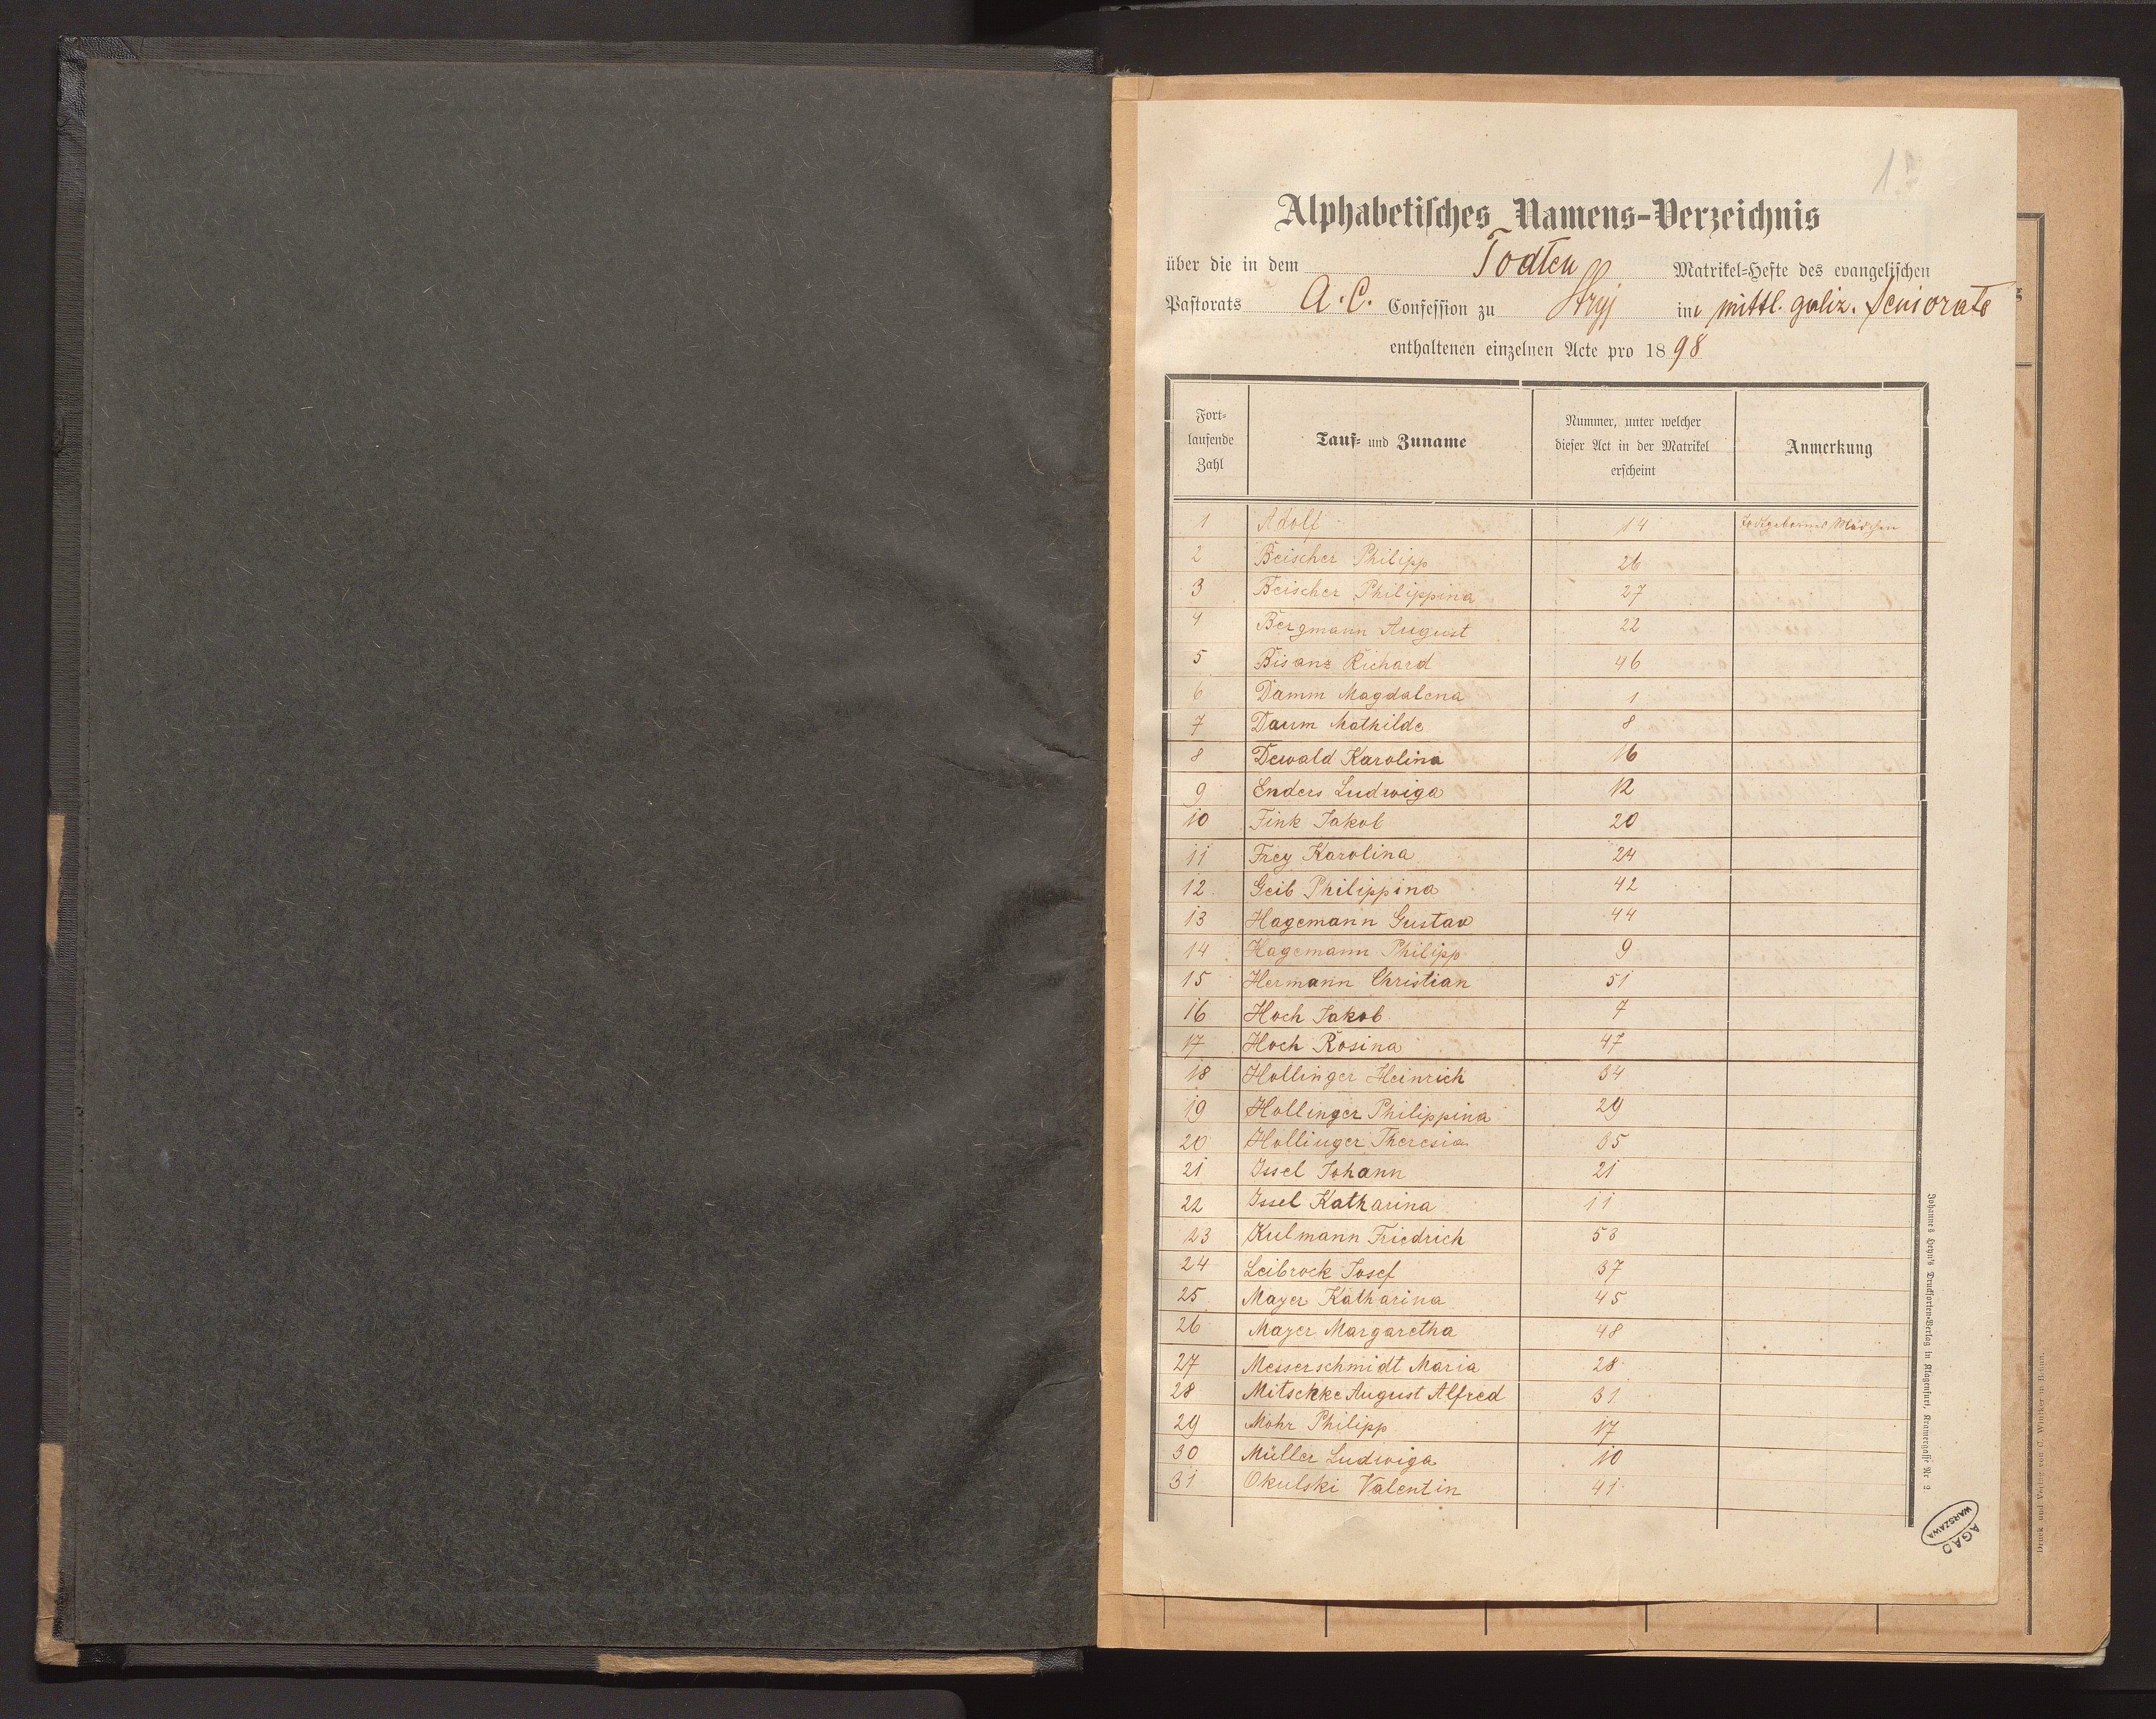 Alphabetisches Namens-Verzeichnis
über die in dem Todten Matrikel-Hefte des evangelischen
Pastorats A. C. Confession zu Stryj im mittl. galiz. Seniorate
enthaltenen einzelnen Acte pro 1898
Fort-laufende Zahl Tauf- und Zuname Nummer, unter welcher dieser Act in der Matrikel erscheint Anmerkung
1 Adolf 14 Todtgeborenes Mädchen
2 Beischer Philipp 26
3 Beischer Philippina 27
4 Bergmann August 22
5 Bisanz Richard 46
6 Damm Magdalena 1
7 Daum Mathilde 8
8 Dewald Karolina 16
9 Enders Ludwiga 12
10 Fink Jakob 20
11 Frey Karolina 24
12 Geib Philippina 42
13 Hagemann Gustav 44
14 Hagemann Philipp 9
15 Hermann Christian 51
16 Hoch Jakob 7
17 Hoch Rosina 47
18 Hollinger Heinrich 34
19 Hollinger Philippina 29
20 Hollinger Theresia 35
21 Issel Johann 21
22 Issel Katharina 11
23 Kulmann Friedrich 53
24 Leibrock Josef 37
25 Mayer Katharina 45
26 Mayer Margaretha 48
27 Messerschmidt Maria 28
28 Mitschke August Alfred 31
29 Mohr Philipp 17
30 Müller Ludwiga 10
31 Okulski Valentin 41
Johannes Heyn's Drucksorten-Verlag in Klagenfurt, Kramergasse Nr. 2.
AGAD
WARSZAWA
Druck und Verlag von C. Winiker in Brünn.